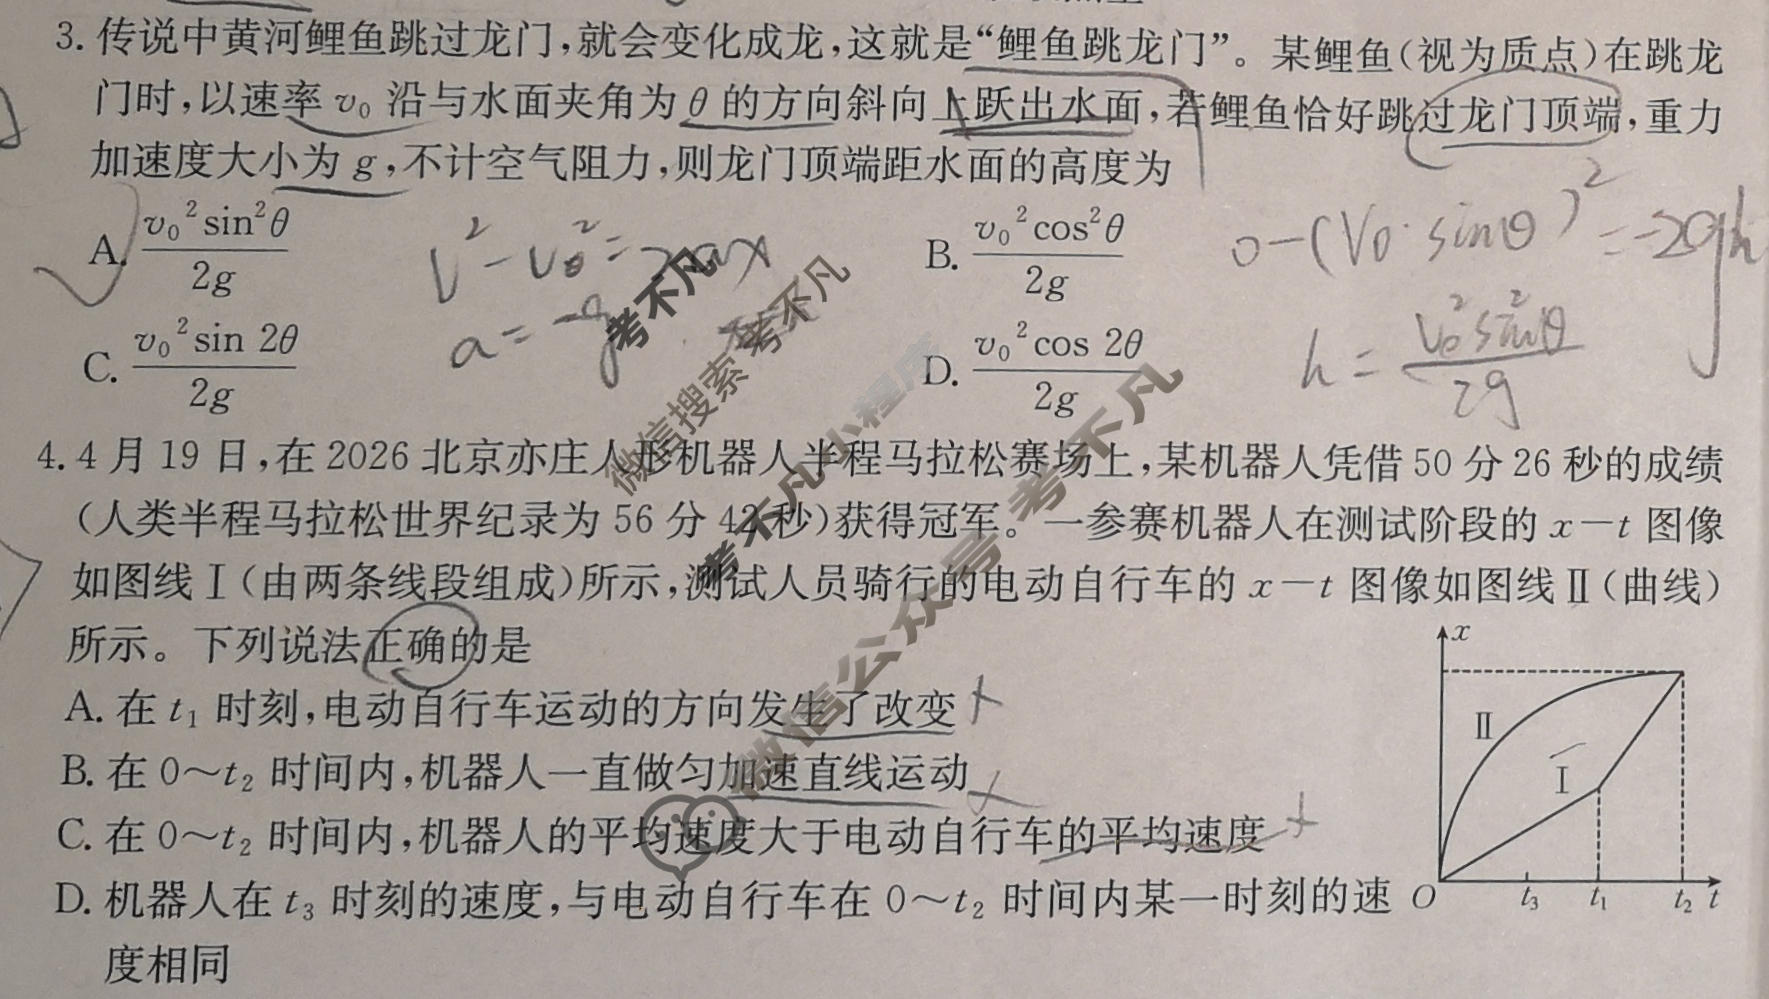 3. 传说中黄河鲤鱼跳过龙门,就会变化成龙,这就是“鲤鱼跳龙门”。某鲤鱼(视为质点)在跳龙
门时,以速率 v₀ 沿与水面夹角为 θ 的方向斜向上跃出水面,若鲤鱼恰好跳过龙门顶端,重力
加速度大小为 g,不计空气阻力,则龙门顶端距水面的高度为
A. v₀²sin²θ/2g
B. v₀²cos²θ/2g
C. v₀²sin 2θ/2g
D. v₀²cos 2θ/2g
V²-V₀²=2ax
a=-g
0-(V₀·sinθ)²=-2gh
h=V₀²sin²θ/2g
4. 4 月 19 日,在 2026 北京亦庄人形机器人半程马拉松赛场上,某机器人凭借 50 分 26 秒的成绩
(人类半程马拉松世界纪录为 56 分 42 秒)获得冠军。一参赛机器人在测试阶段的 x-t 图像
如图线Ⅰ(由两条线段组成)所示,测试人员骑行的电动自行车的 x-t 图像如图线Ⅱ(曲线)
所示。下列说法正确的是
A. 在 t₁ 时刻,电动自行车运动的方向发生了改变
B. 在 0~t₂ 时间内,机器人一直做匀加速直线运动
C. 在 0~t₂ 时间内,机器人的平均速度大于电动自行车的平均速度
D. 机器人在 t₃ 时刻的速度,与电动自行车在 0~t₂ 时间内某一时刻的速
度相同
x
Ⅱ
Ⅰ
O t₃ t₁ t₂ t
考不凡
考不凡
微信搜索
小程序
考不凡
考不凡
微信公众号
考不凡